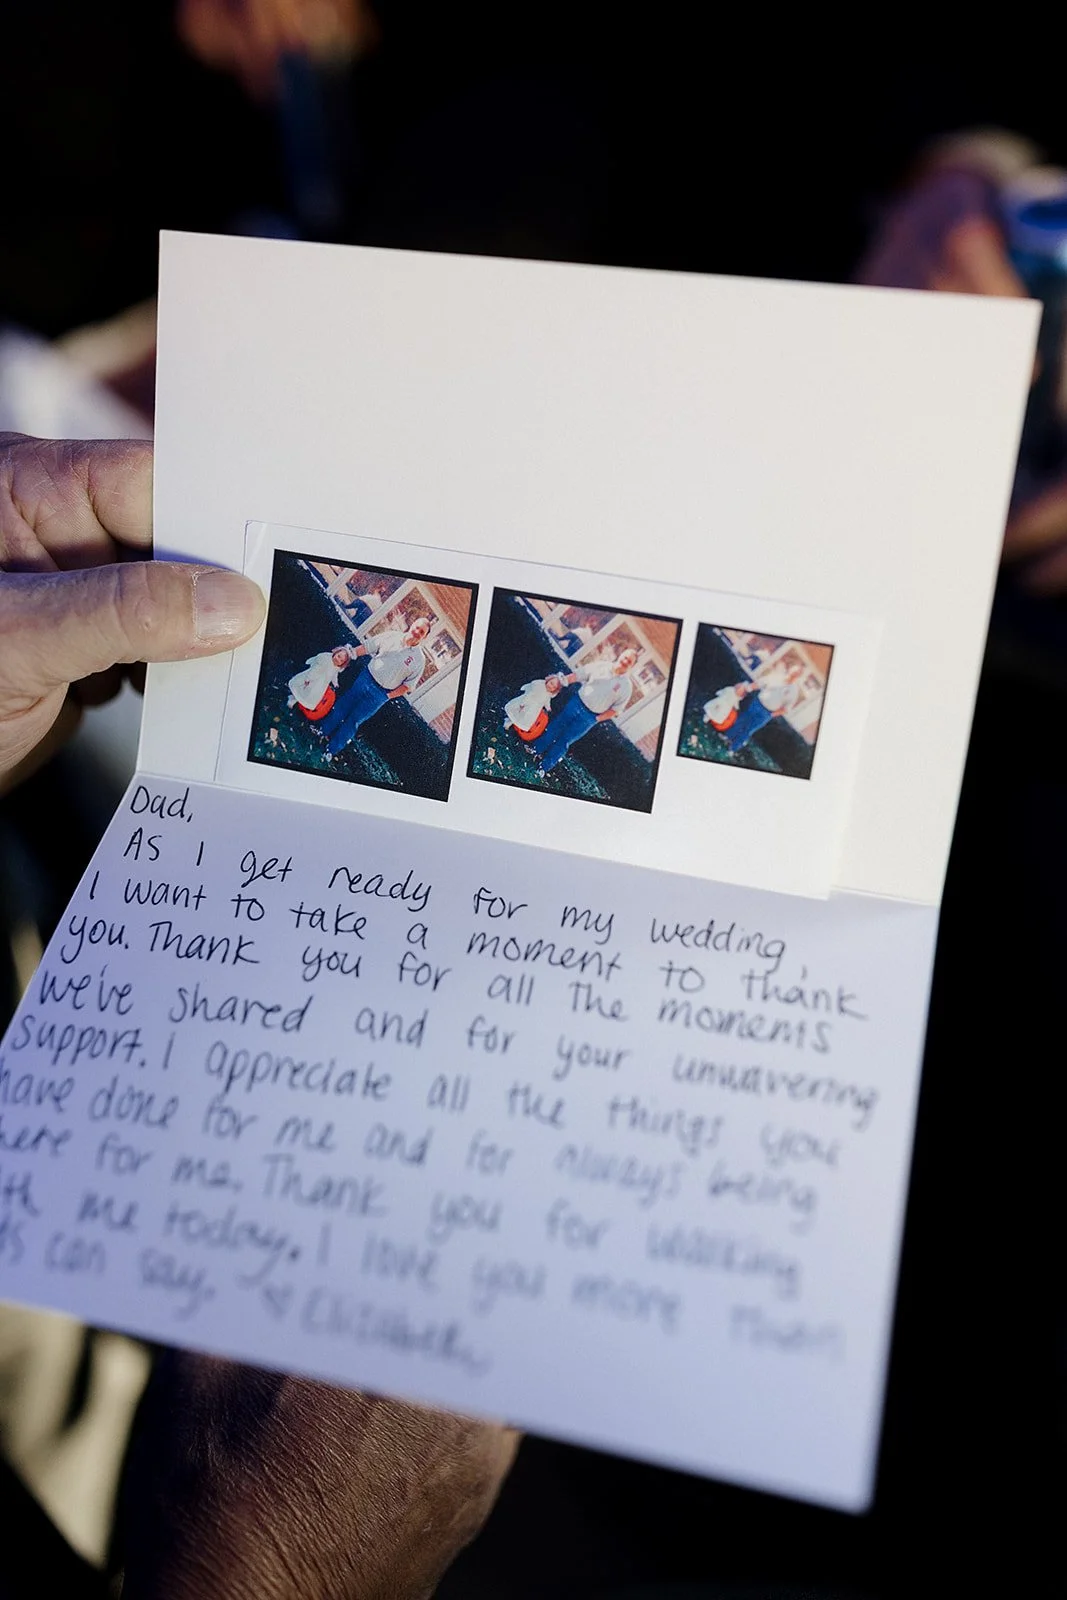 Dad,
As I get ready for my wedding,
I want to take a moment to thank
you. Thank you for all the moments
we've shared and for your unwavering
support. I appreciate all the things you
have done for me and for always being
here for me. Thank you for walking
ith me today. I love you more than
ds can say. ♡ Elizabeth